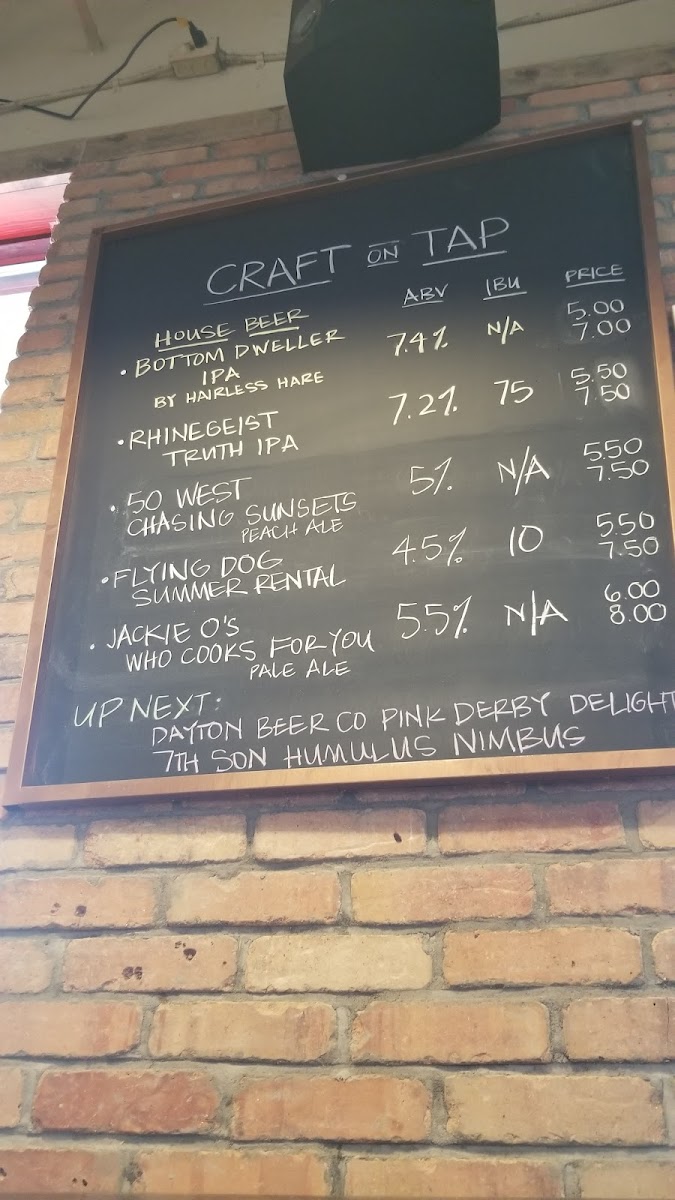 CRAFT ON TAP
ABV IBU PRICE
HOUSE BEER
• BOTTOM DWELLER 7.4% N/A 5.00
IPA 7.00
BY HAIRLESS HARE
• RHINEGEIST 7.2% 75 5.50
TRUTH IPA 7.50
• 50 WEST 5% N/A 5.50
CHASING SUNSETS 7.50
PEACH ALE
• FLYING DOG 4.5% 10 5.50
SUMMER RENTAL 7.50
• JACKIE O'S 5.5% N/A 6.00
WHO COOKS FOR YOU 8.00
PALE ALE
UP NEXT:
DAYTON BEER CO PINK DERBY DELIGHT
7TH SON HUMULUS NIMBUS